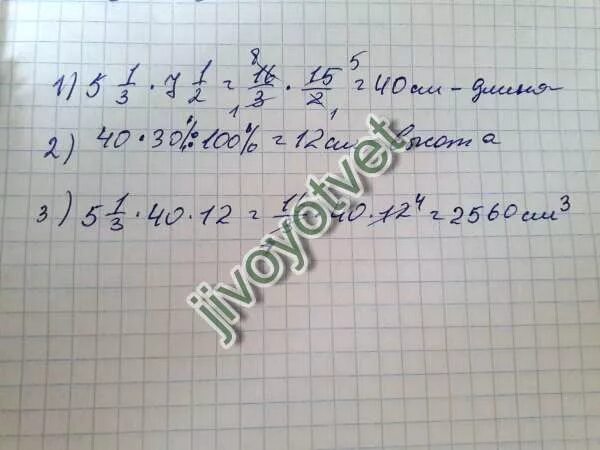 1) 5 1/3 · 7 1/2 = 16/3 · 15/2 = 40 см - длина
2) 40 · 30% : 100% = 12 см высота
3) 5 1/3 · 40 · 12 = 16/3 · 40 · 12 = 2560 см³
jivoyotvet